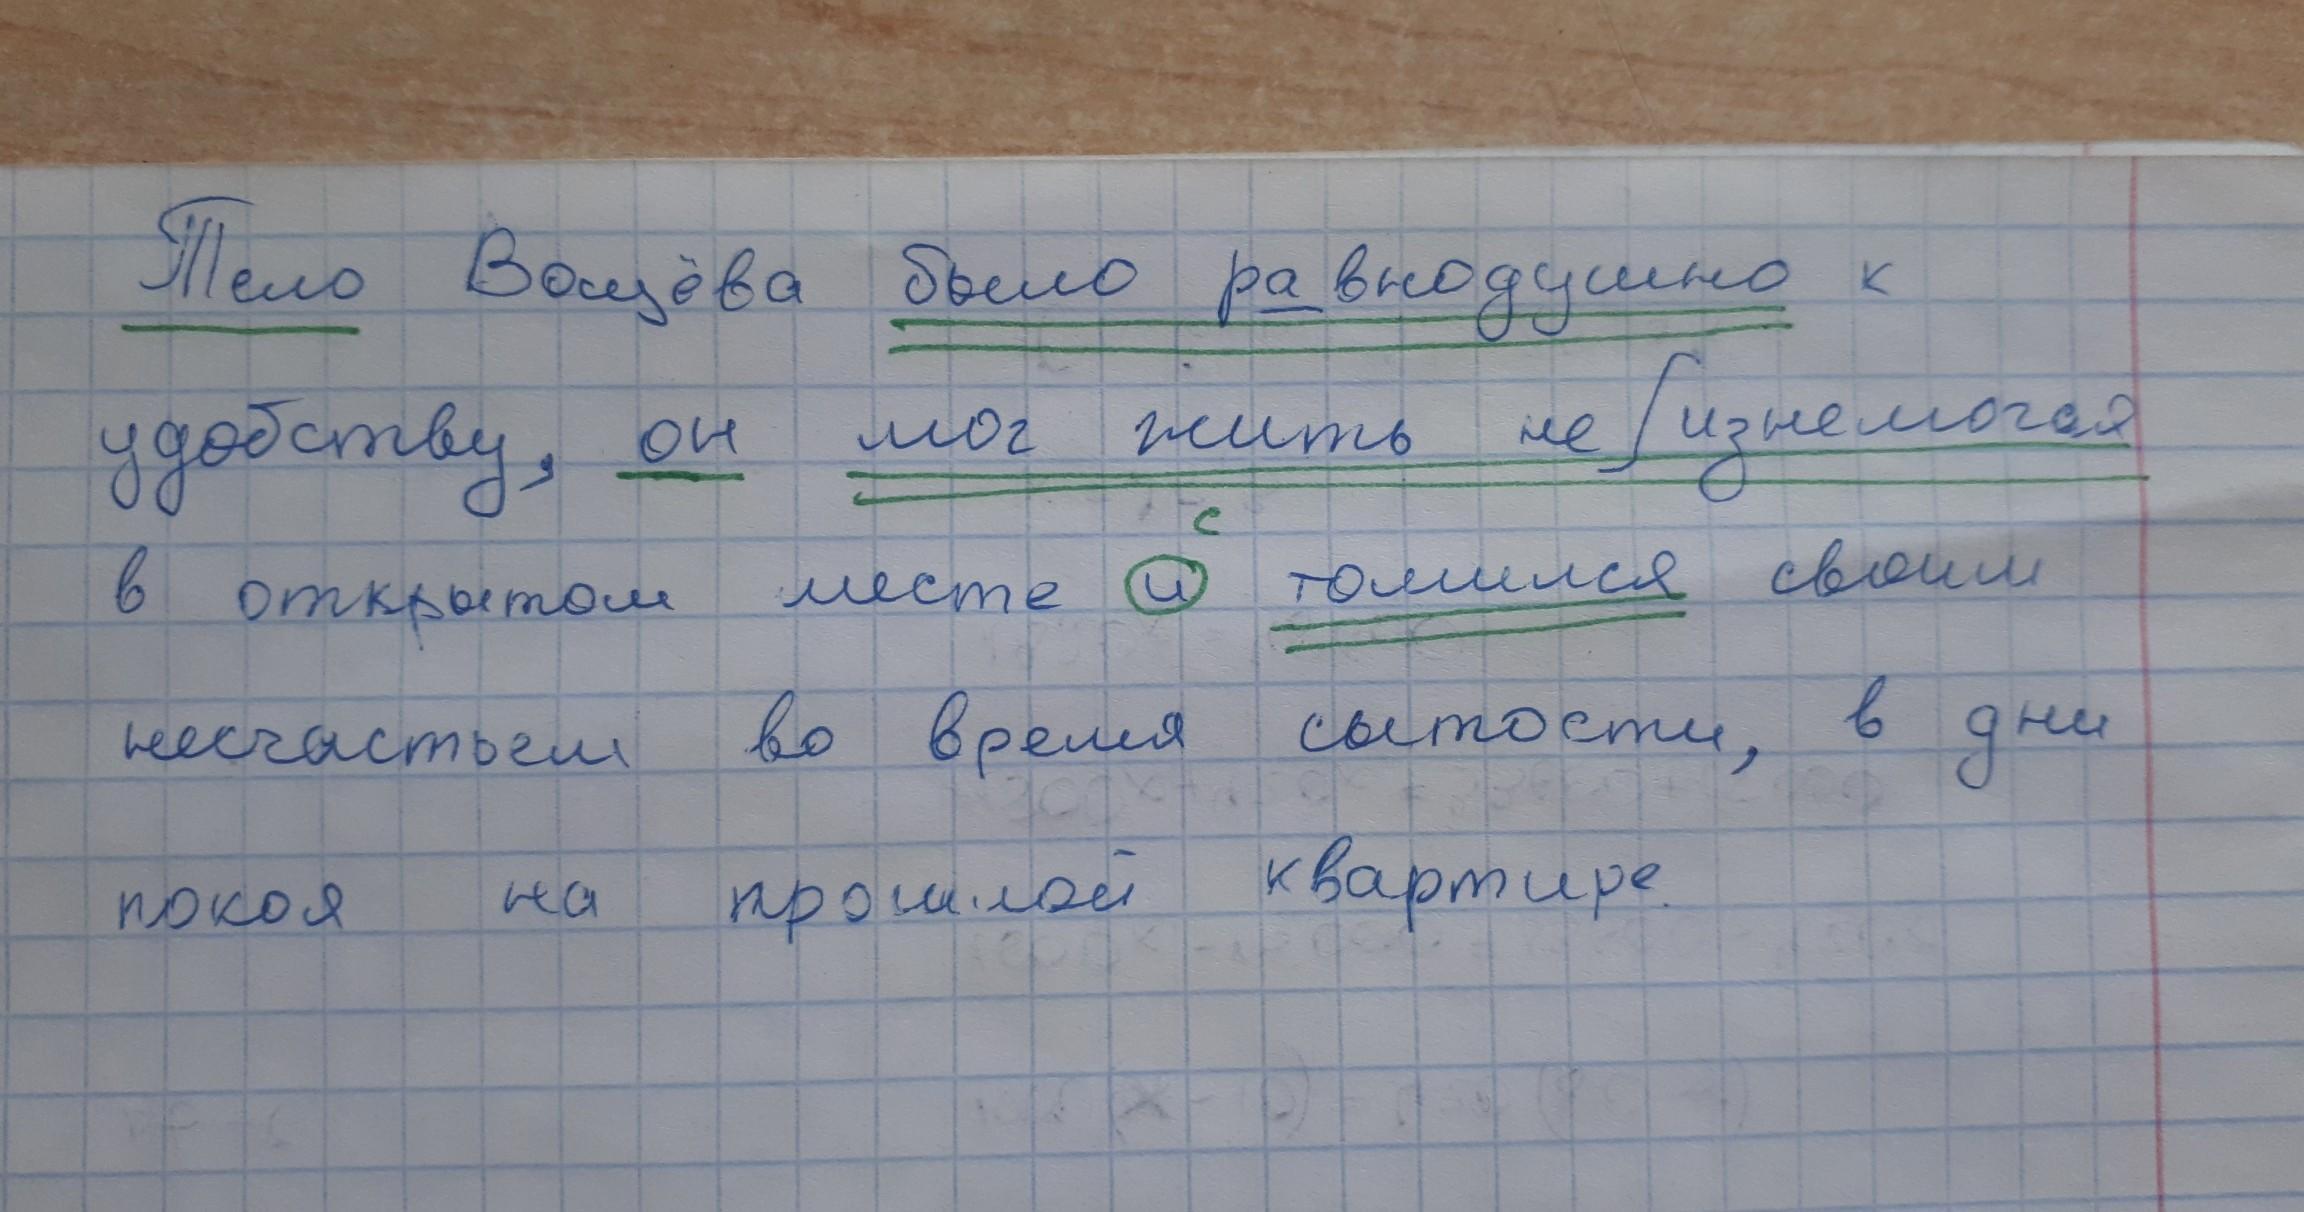 Тело Вощёва было равнодушно к
удобству, он мог жить не изнемогая
с
в открытом месте и томился своим
несчастьем во время сытости, в дни
покоя на прошлой квартире.